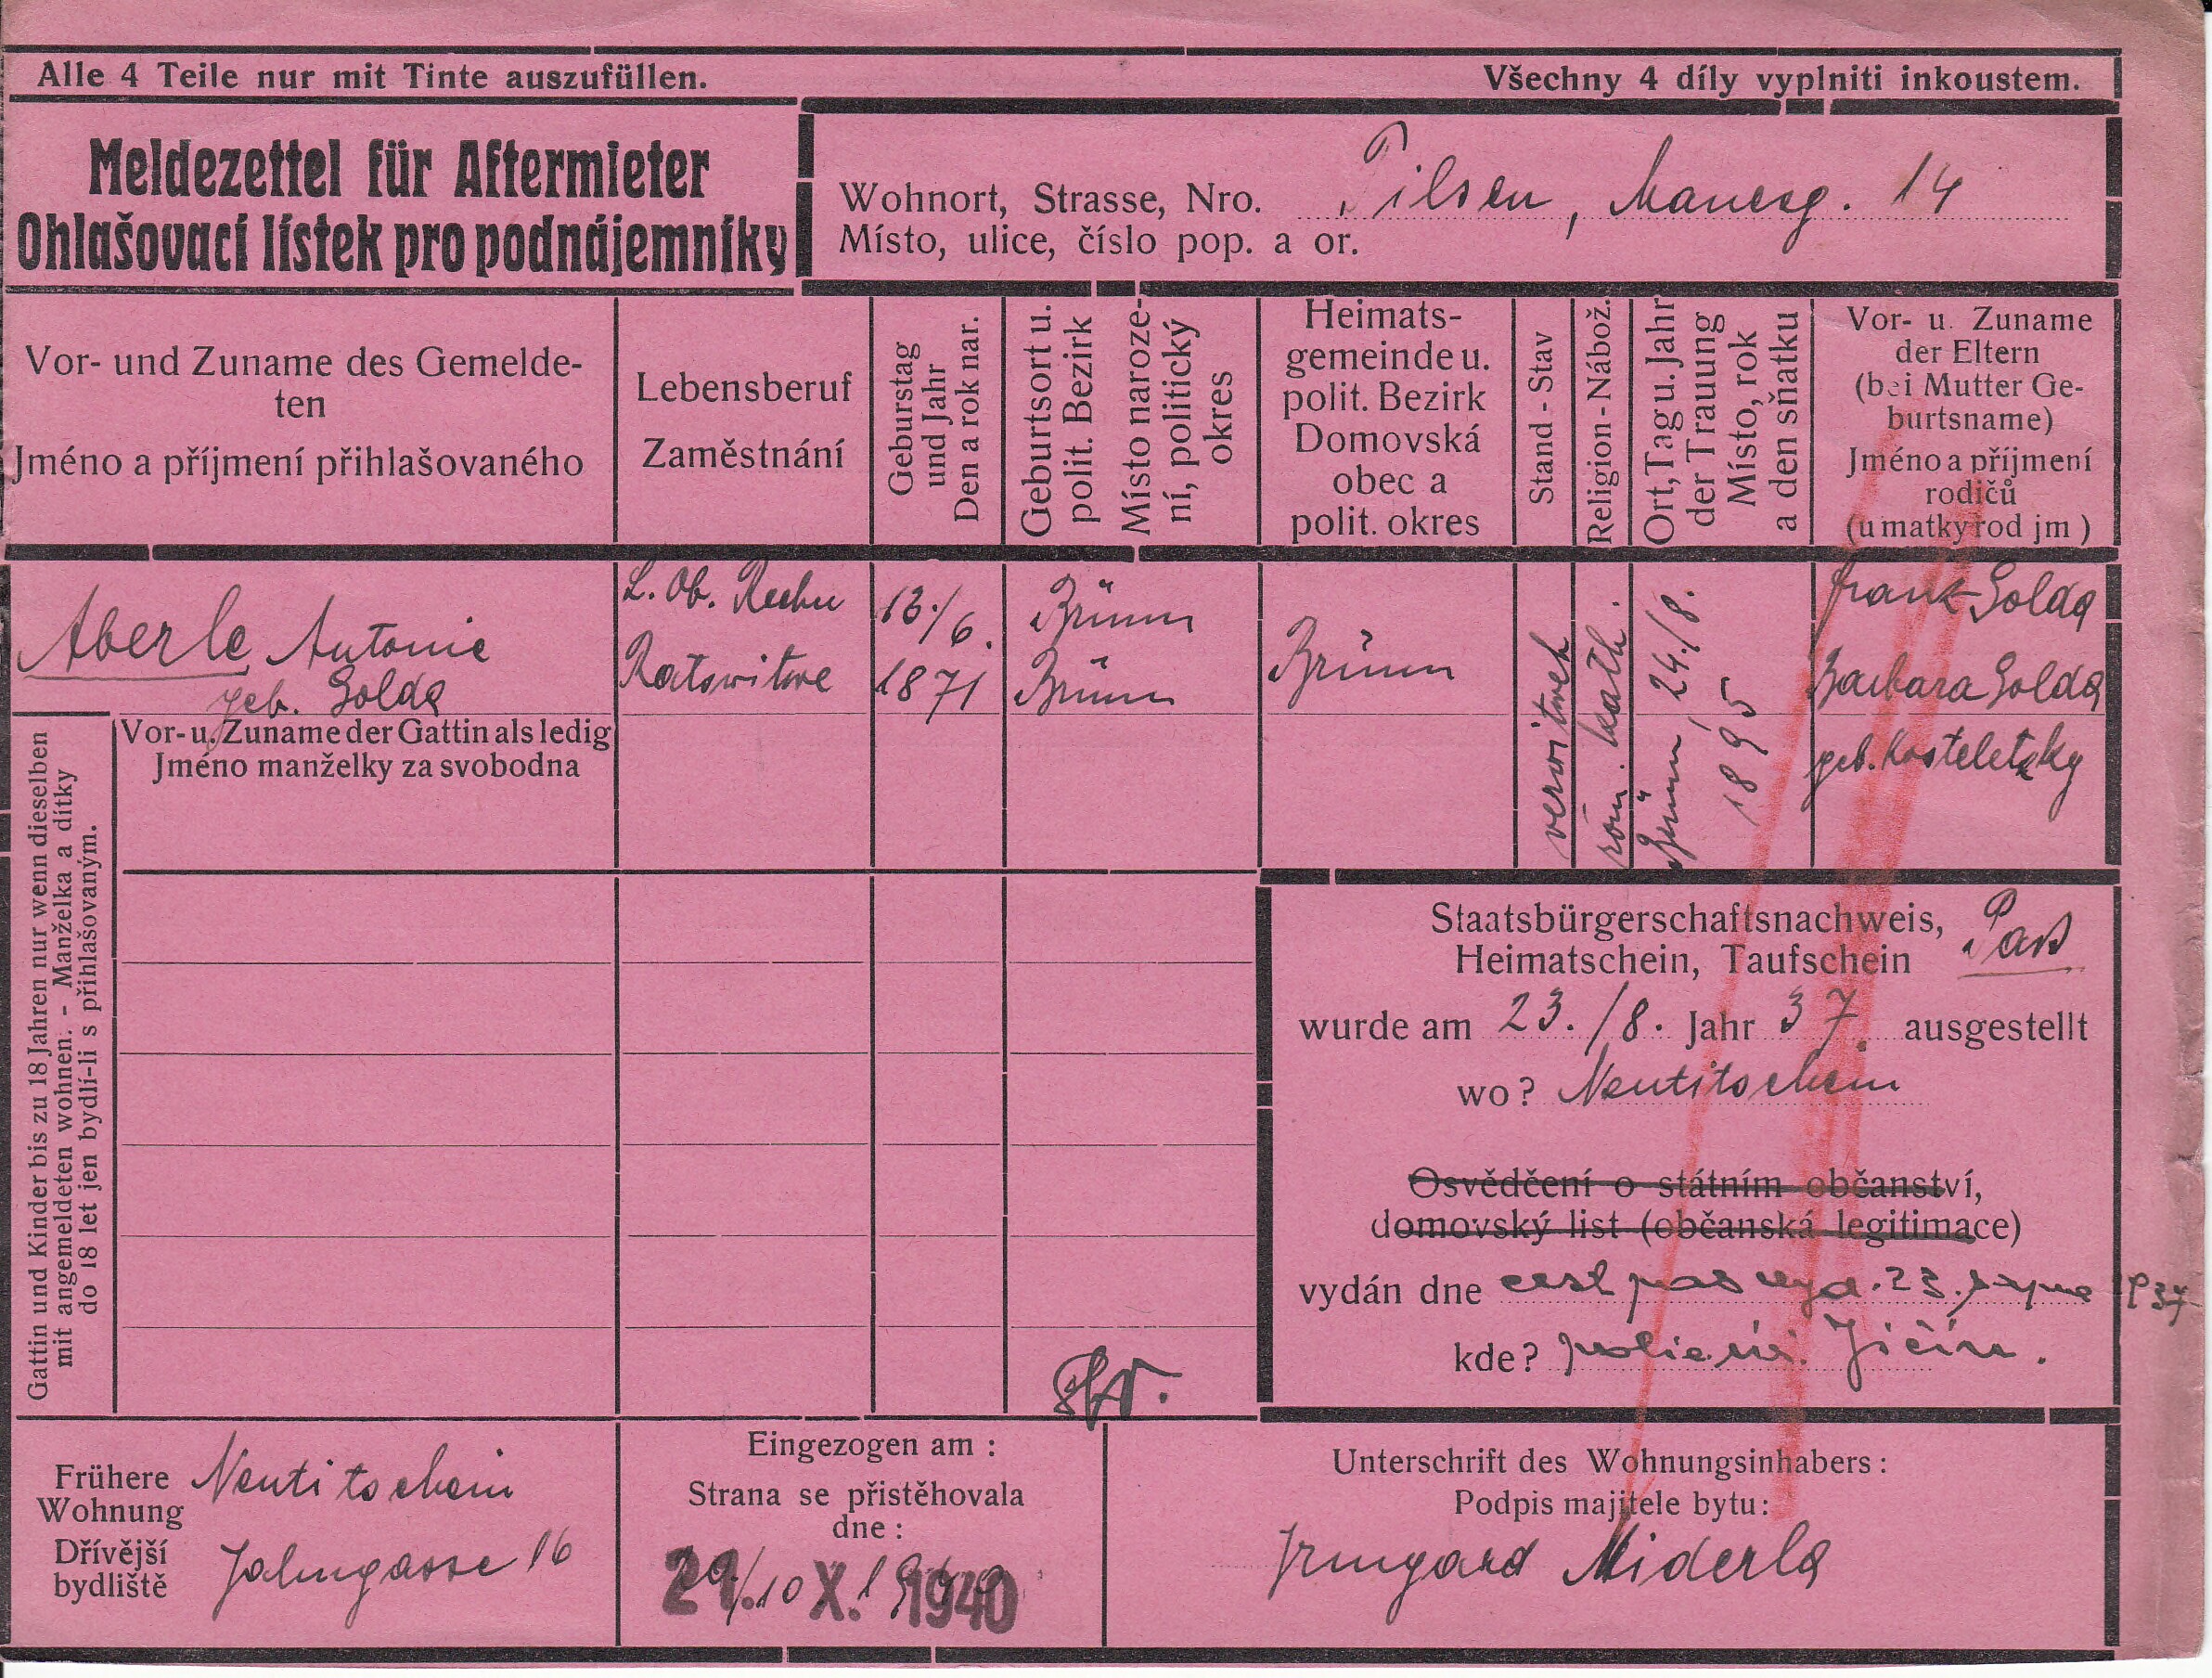 Alle 4 Teile nur mit Tinte auszufüllen.
Všechny 4 díly vyplniti inkoustem.
Meldezettel für Aftermieter
Ohlašovací lístek pro podnájemníky
Wohnort, Strasse, Nro. Pilsen, Manesg. 14
Místo, ulice, číslo pop. a or.
Vor- und Zuname des Gemelde-
ten
Jméno a příjmení přihlašovaného
Lebensberuf
Zaměstnání
Geburstag
und Jahr
Den a rok nar.
Geburtsort u.
polit. Bezirk
Místo naroze-
ní, politický
okres
Heimats-
gemeinde u.
polit. Bezirk
Domovská
obec a
polit. okres
Stand - Stav
Religion - Nábož.
Ort, Tag u. Jahr
der Trauung
Místo, rok
a den sňatku
Vor- u. Zuname
der Eltern
(bei Mutter Ge-
burtsname)
Jméno a příjmení
rodičů
(u matky rod jm )
Aberle Antonie
geb. Golda
L. Ob. Rechn
Ratswitwe
13./6.
1871
Brünn
Brünn
Brünn
verwitwet
röm. kath.
Brünn, 24./8.
1895
Frank Golda
Barbara Golda
geb. Kosteletzky
Vor- u. Zuname der Gattin als ledig
Jméno manželky za svobodna
Gattin und Kinder bis zu 18 Jahren nur wenn dieselben
mit angemeldeten wohnen. - Manželka a dítky
do 18 let jen bydlí-li s přihlašovaným.
Staatsbürgerschaftsnachweis,
Heimatschein, Taufschein Pass
wurde am 23./8. Jahr 37. ausgestellt
wo? Neutitschein
Osvědčení o státním občanství,
domovský list (občanská legitimace)
vydán dne cest pas vyd. 23. srpna 937
kde? Jičín.
Frühere
Wohnung
Neutitschein
Dřívější
bydliště
Jahngasse 16
Eingezogen am :
Strana se přistěhovala
dne :
21. X. 1940
Unterschrift des Wohnungsinhabers :
Podpis majitele bytu :
Irmgard Miderla